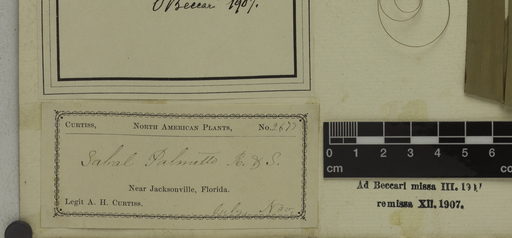 O Beccari 1907.
Curtiss, North American Plants, No. 2677
Sabal Palmetto R. & S.
Near Jacksonville, Florida.
Legit A. H. Curtiss.
0 1 2 3 4 5 6
cm
Ad Beccari missa III. 19
remissa XII. 1907.